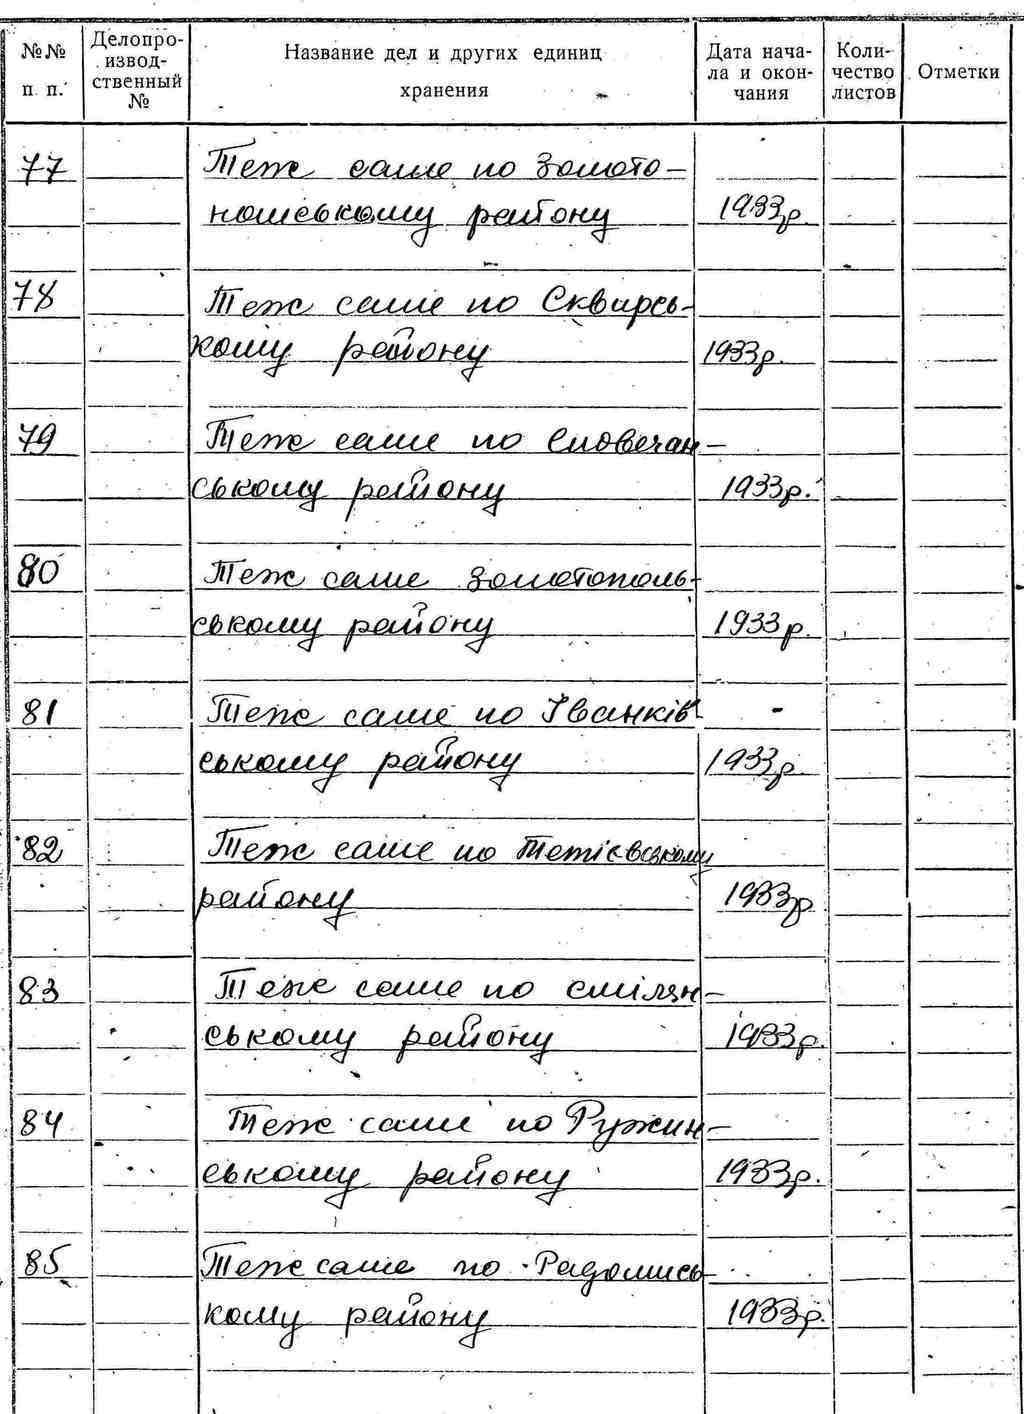 №№ п. п.
Делопро-
извод-
ственный
№
Название дел и других единиц
хранения
Дата нача-
ла и окон-
чания
Коли-
чество
листов
Отметки
77 Теж саме по Золото-
ношському району 1933р.
78 Теж саме по Сквирсь-
кому району 1933р.
79 Теж саме по Словечан-
ському району 1933р.
80 Теж саме Золотополь-
ському району 1933р.
81 Теж саме по Іванків
ському району 1933р.
82 Теж саме по Тетіевському
району 1933р
83 Теж саме по Смілян-
ському району 1933р.
84 Теж саме по Ружин-
ському району 1933р.
85 Теж саме по Радомись-
кому району 1933р.